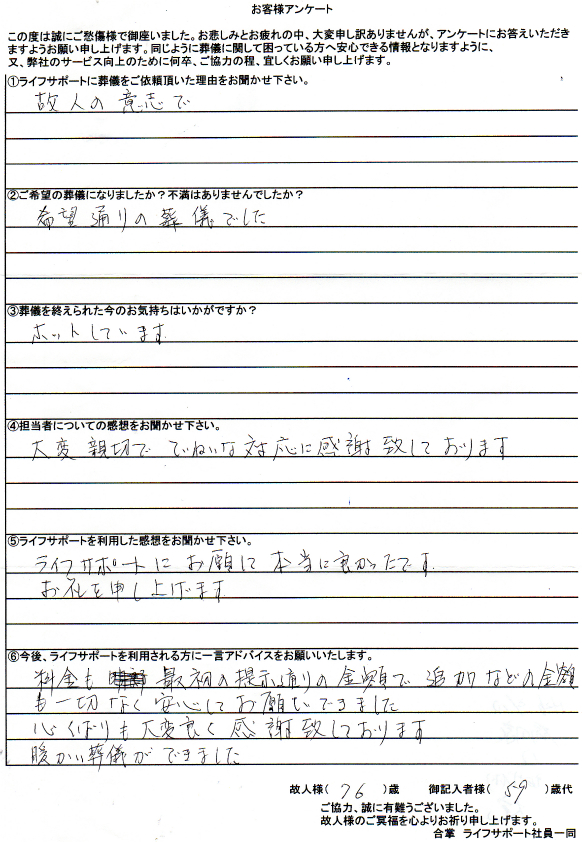 お客様アンケート
この度は誠にご愁傷様で御座いました。お悲しみとお疲れの中、大変申し訳ありませんが、アンケートにお答えいただき
ますようお願い申し上げます。同じように葬儀に関して困っている方へ安心できる情報となりますように、
又、弊社のサービス向上のために何卒、ご協力の程、宜しくお願い申し上げます。
①ライフサポートに葬儀をご依頼頂いた理由をお聞かせ下さい。
故人の意志で
②ご希望の葬儀になりましたか?不満はありませんでしたか?
希望通りの葬儀でした
③葬儀を終えられた今のお気持ちはいかがですか?
ホットしています
④担当者についての感想をお聞かせ下さい。
大変親切でていねいな対応に感謝致しております
⑤ライフサポートを利用した感想をお聞かせ下さい。
ライフサポートにお願して本当に良かったです
お礼を申し上げます
⑥今後、ライフサポートを利用される方に一言アドバイスをお願いいたします。
料金も 最初の提示通りの金額で追加などの金額
も一切なく安心してお願いできました
心くばりも大変良く感謝致しております
暖かい葬儀ができました
故人様( 76 )歳 御記入者様( 59 )歳代
ご協力、誠に有難うございました。
故人様のご冥福を心よりお祈り申し上げます。
合掌 ライフサポート社員一同